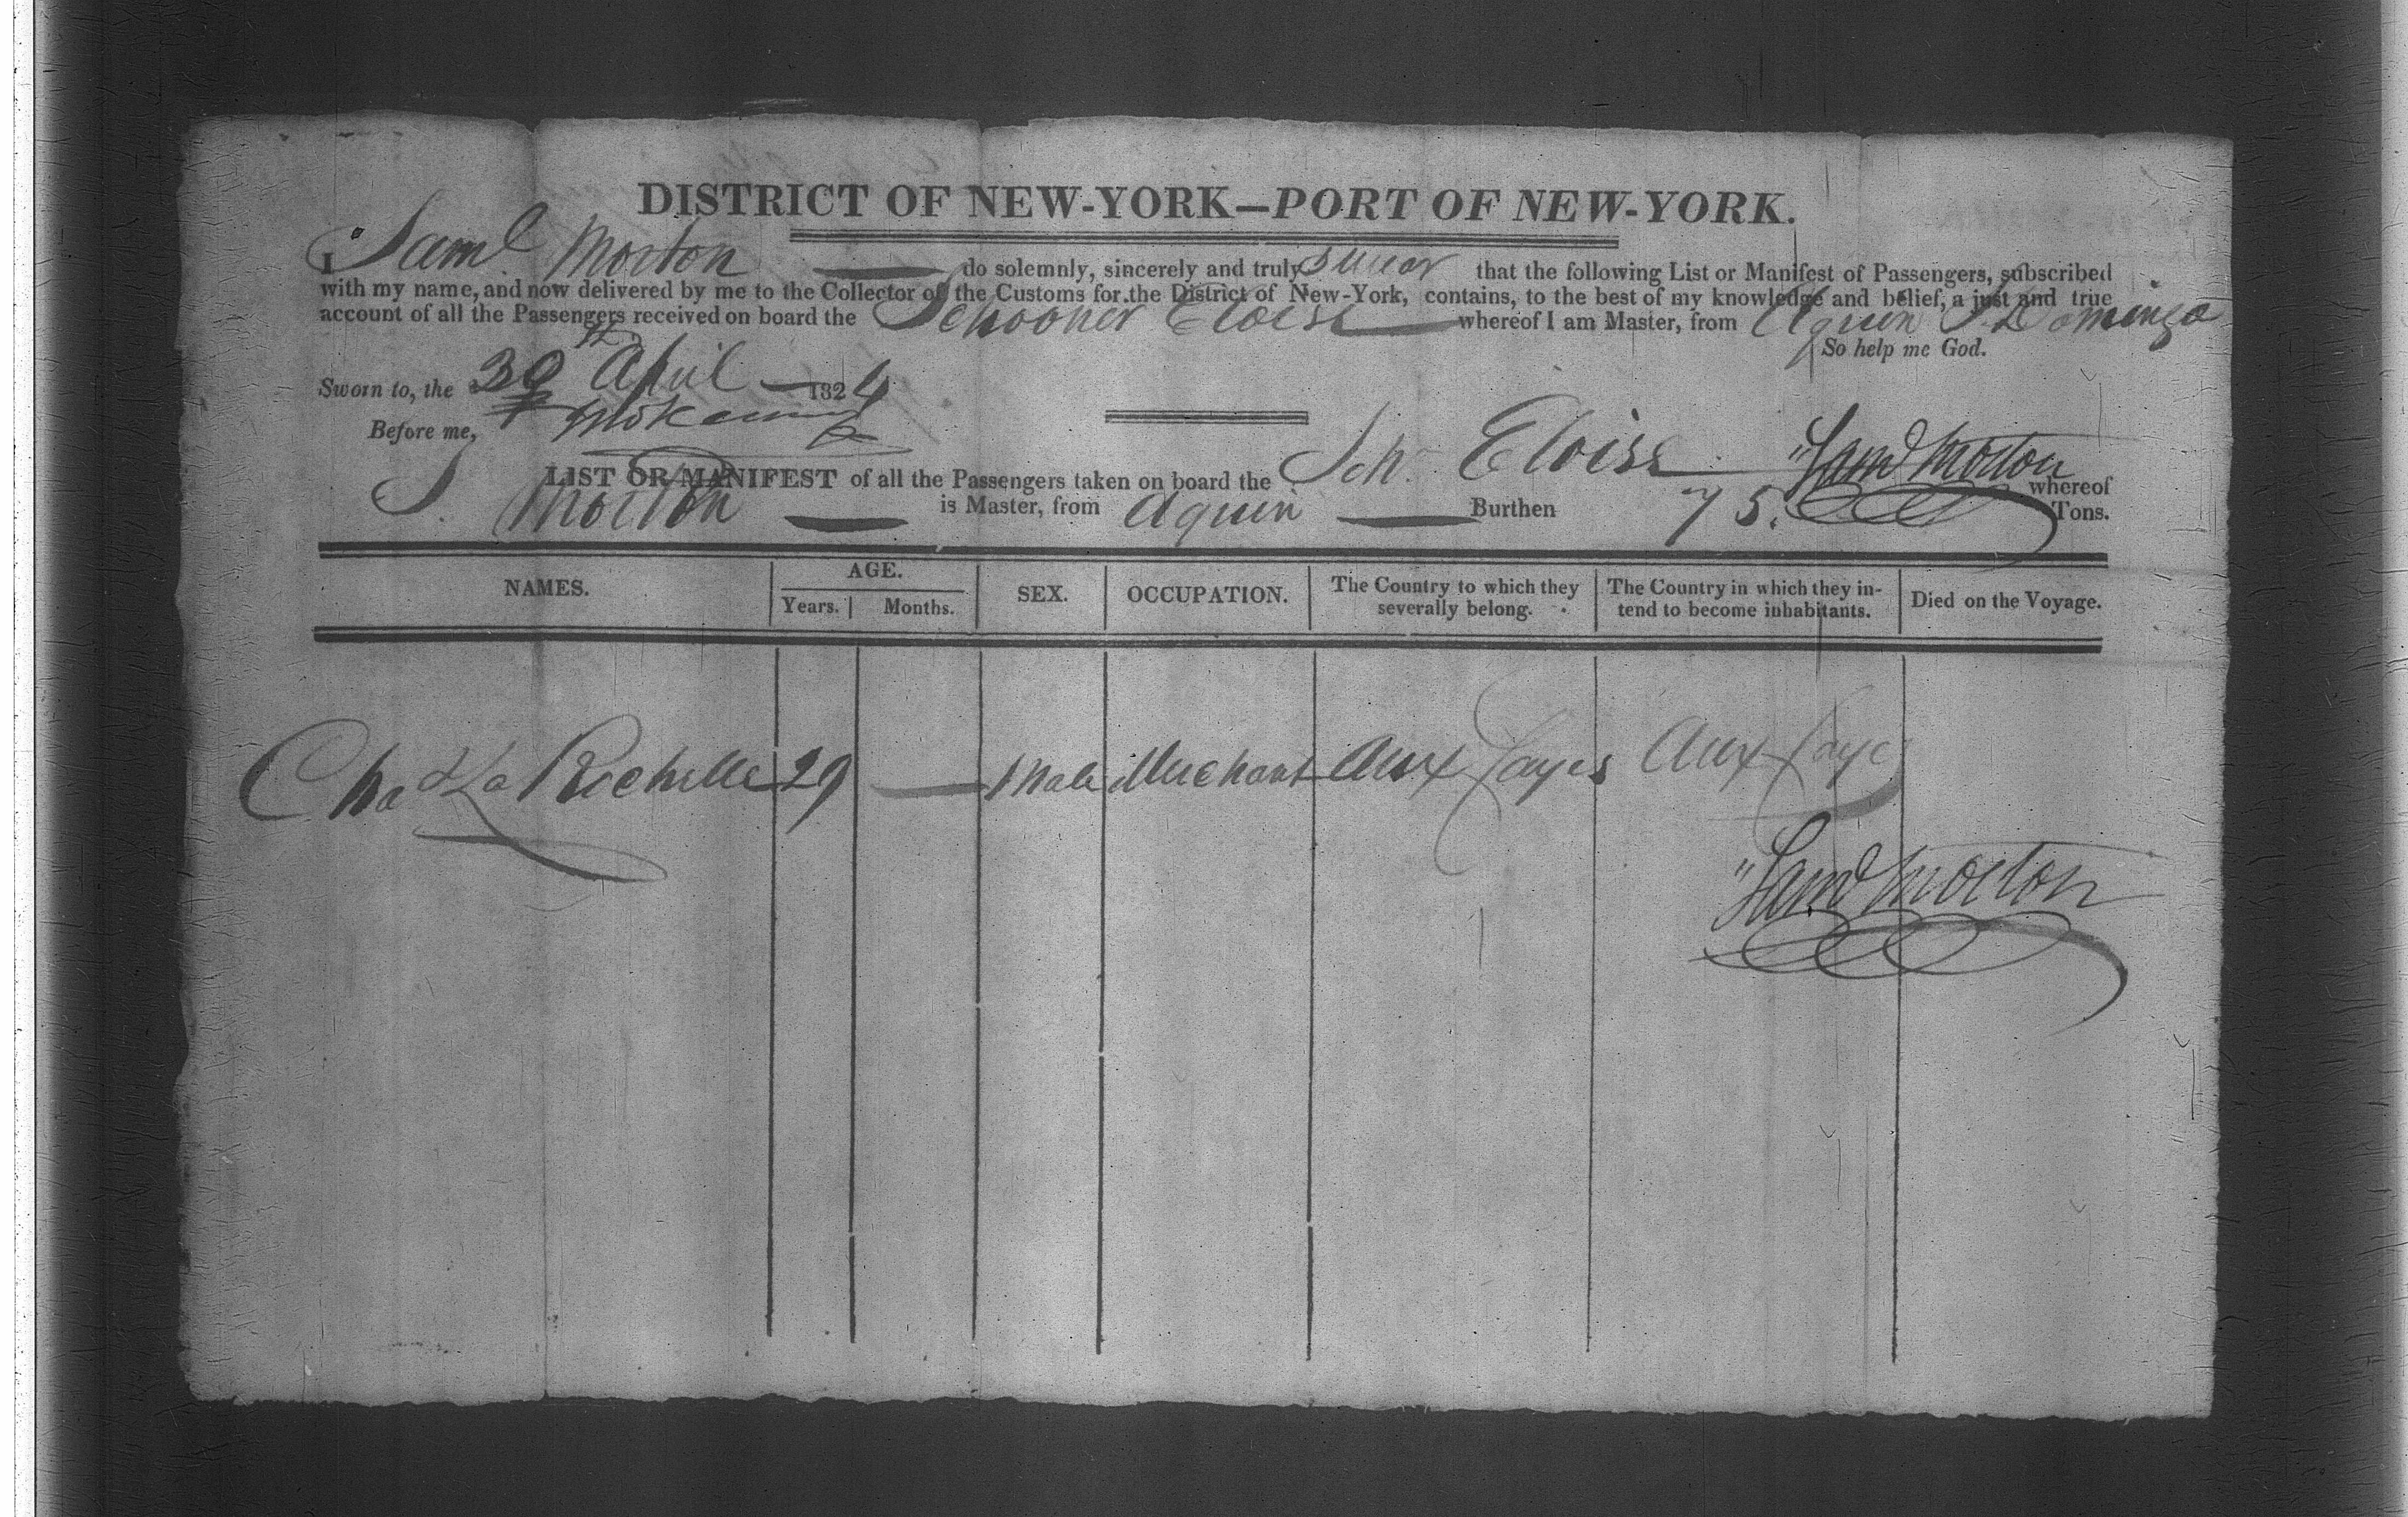 DISTRICT OF NEW-YORK—PORT OF NEW-YORK.
I Saml Morton do solemnly, sincerely and truly swear that the following List or Manifest of Passengers, subscribed
with my name, and now delivered by me to the Collector of the Customs for the District of New-York, contains, to the best of my knowledge and belief, a just and true
account of all the Passengers received on board the Schooner Eloise whereof I am Master, from Aquin St Domingo
So help me God.
Sworn to, the 30th April 1824
Before me,
Saml Morton
LIST OR MANIFEST of all the Passengers taken on board the Schr Eloise whereof
S. Morton is Master, from Aquin Burthen 75. Tons.
NAMES. AGE. Years. Months. SEX. OCCUPATION. The Country to which they severally belong. The Country in which they intend to become inhabitants. Died on the Voyage.
Chas La Richelle 29 — Male Merchant Aux Cayes Aux Cayes
Saml Morton